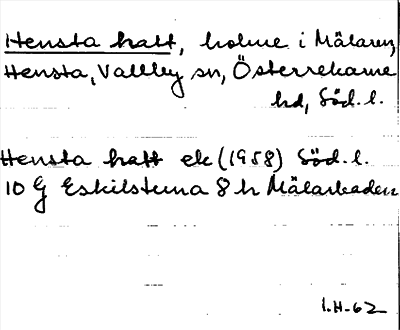 Hensta hatt, holme i Mälaren,
Hensta, Vallby sn, Österrekarne
hd, Söd. l.
Hensta hatt ek (1958) Söd. l.
10 G Eskilstuna 8 h Mälarbaden
I.H-62